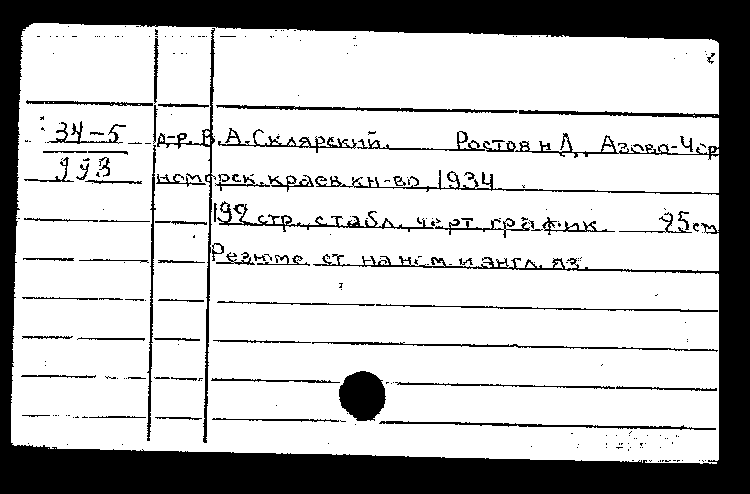 34-5
993
д-р. В. А. Склярский. Ростов н Д., Азово-Чер
номорск. краев. кн-во, 1934
192 стр., с табл., черт., график. 25 см
Резюме ст. на нем. и англ. яз.